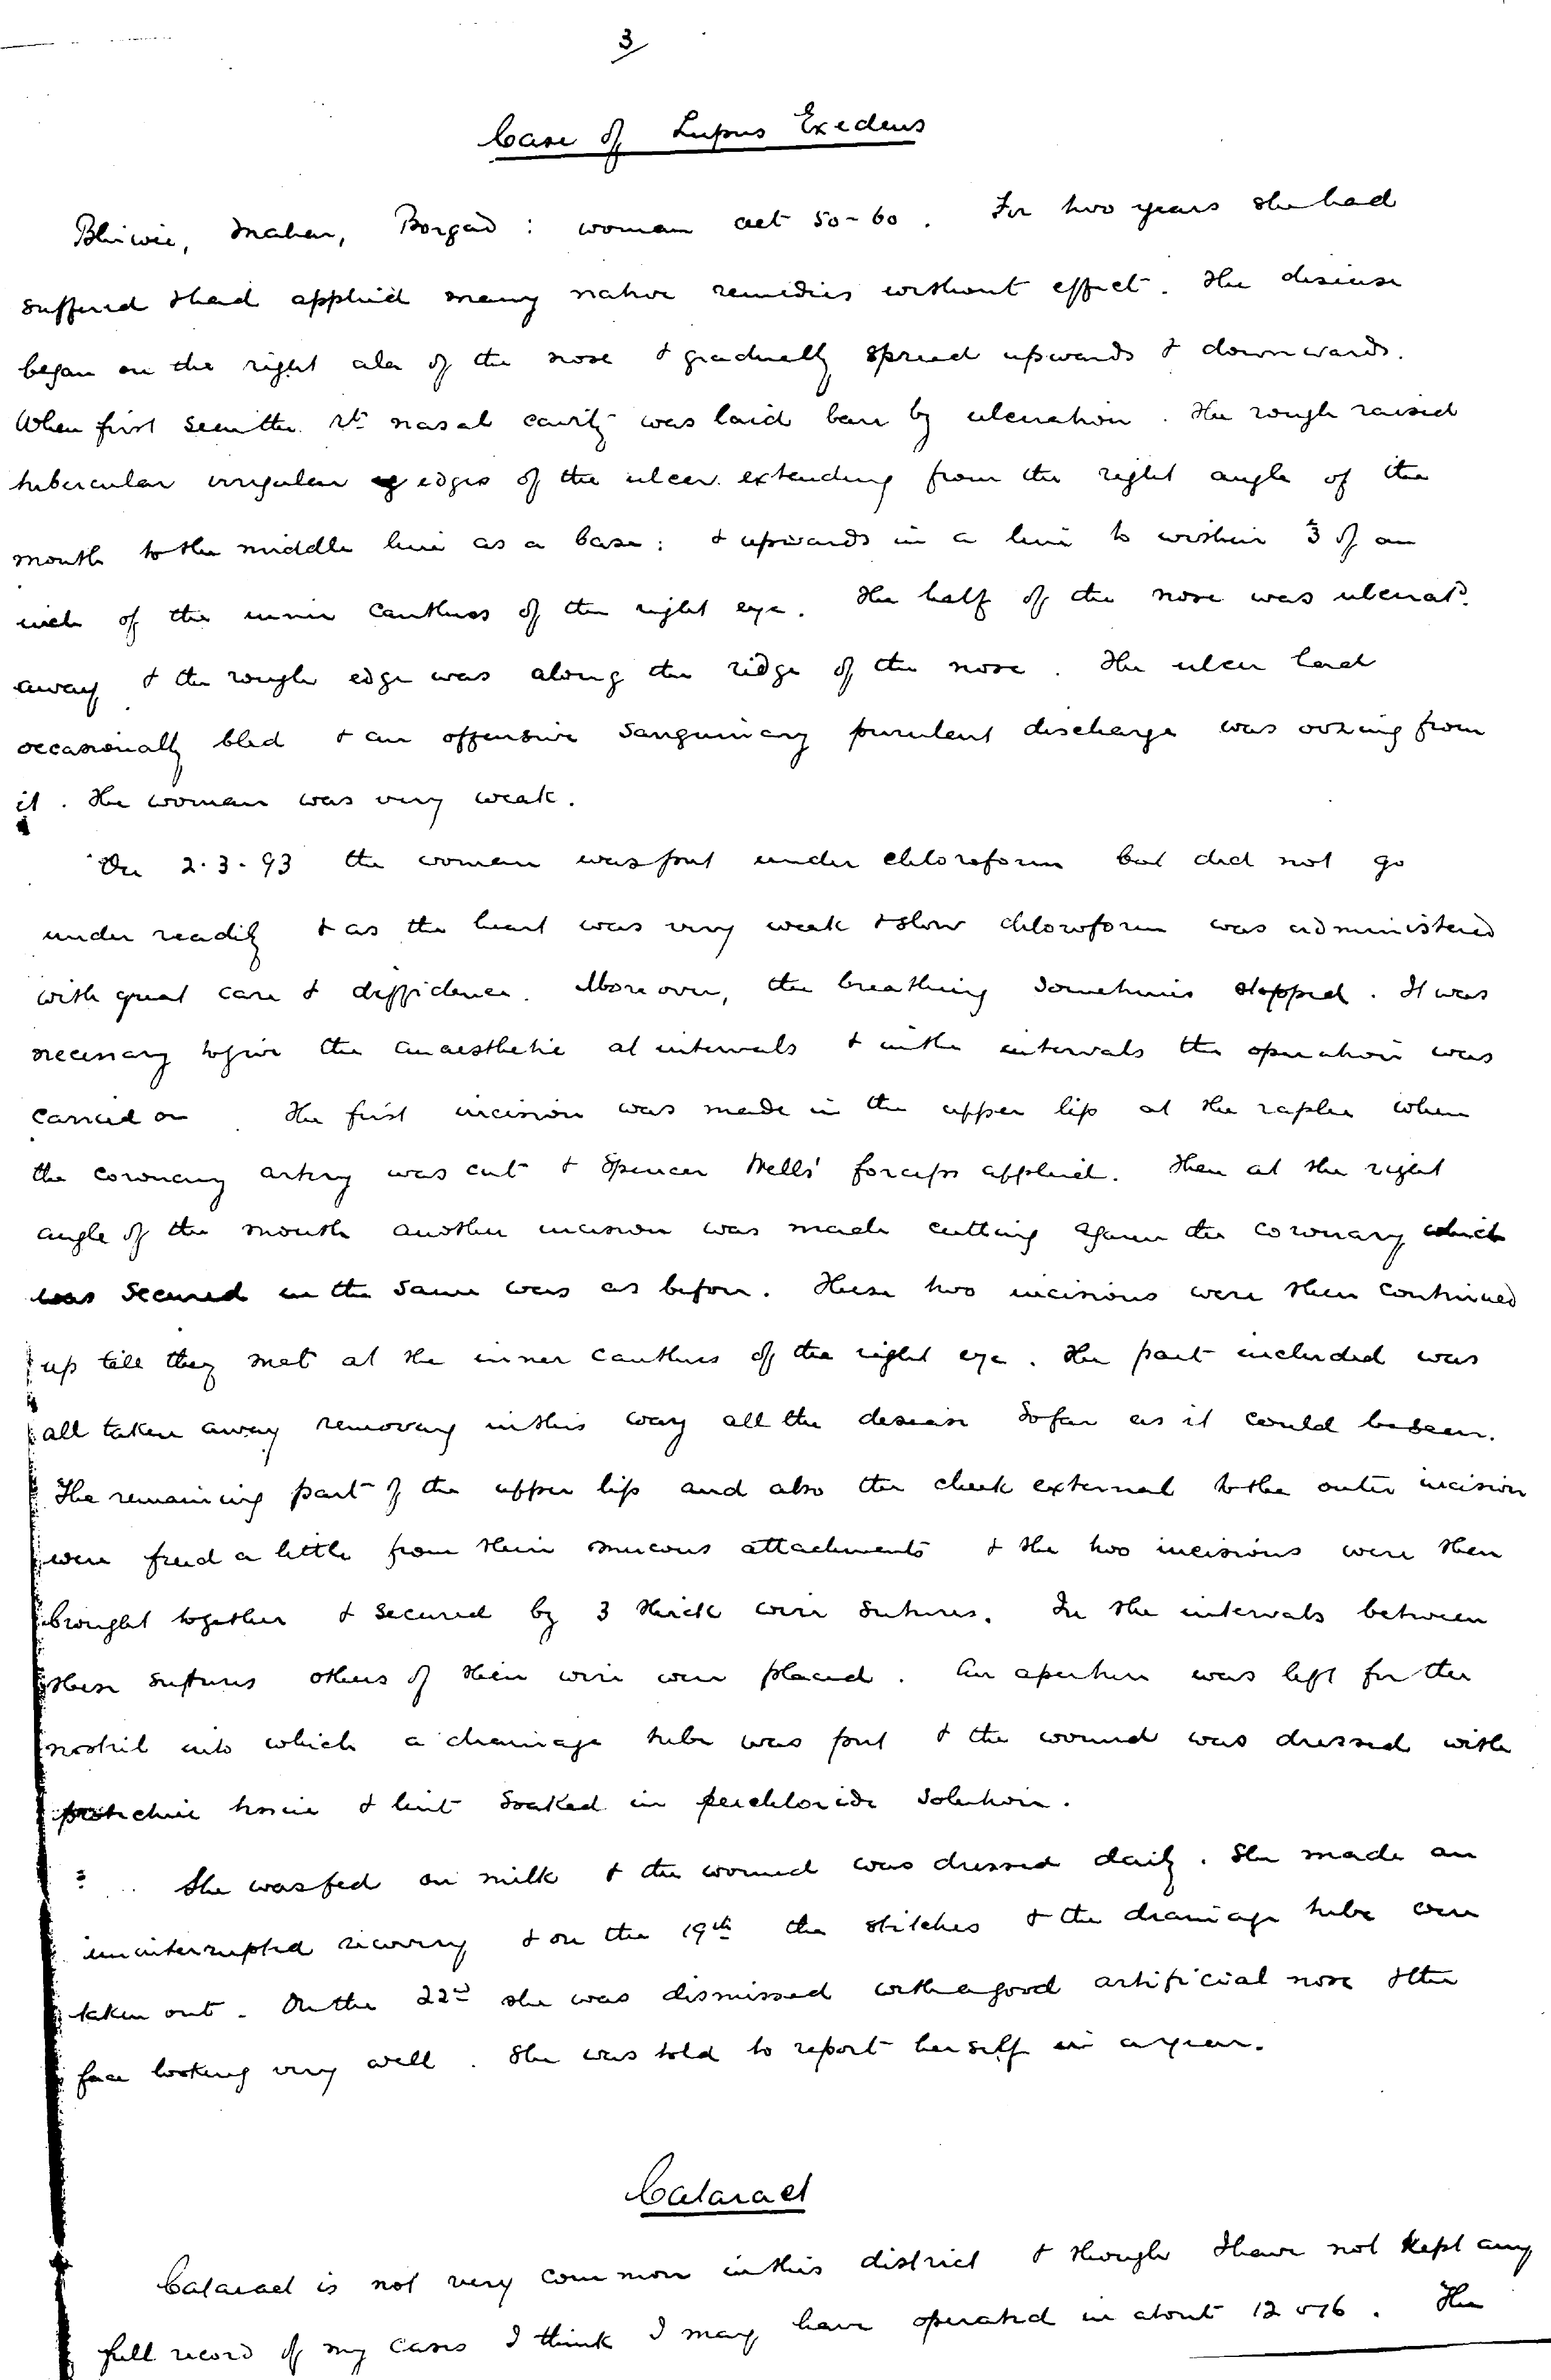 3
Case of Lupus Exedens
Bhiwie, Mahar, Borgad : woman aet 50-60 . For two years she had
suffered & had applied many native remedies without effect . The disease
began on the right ala of the nose & gradually spread upwards & downwards.
When first seen the rt nasal cavity was laid bare by ulceration . The rough raised
tubercular irregular edges of the ulcer extending from the right angle of the
mouth to the middle line as a base : & upwards in a line to within 3 of an
inch of the inner canthus of the right eye . The half of the nose was ulceratd
away & the rough edge was along the ridge of the nose . The ulcer had
occasionally bled & an offensive sanguinary purulent discharge was oozing from
it . The woman was very weak .
On 2.3.93 the woman was put under chloroform but did not go
under readily & as the heart was very weak & slow chloroform was administered
with great care & diffidence . Moreover, the breathing sometimes stopped . It was
necessary to give the anaesthetic at intervals & in the intervals the operation was
carried on . The first incision was made in the upper lip at the raphe when
the coronary artery was cut & Spencer Wells' forceps applied . Then at the right
angle of the mouth another incision was made cutting again the coronary which
was secured in the same way as before . These two incisions were then continued
up till they met at the inner canthus of the right eye . The part included was
all taken away removing in this way all the disease so far as it could be seen .
The remaining part of the upper lip and also the cheek external to the outer incision
were freed a little from their mucous attachments & the two incisions were then
brought together & secured by 3 thick wire sutures . In the intervals between
these sutures others of thin wire were placed . An aperture was left for the
nostril into which a drainage tube was put & the wound was dressed with
protective tissue & lint soaked in perchloride solution .
She was fed on milk & the wound was dressed daily . She made an
uninterrupted recovery & on the 19th the stitches & the drainage tube were
taken out . On the 22nd she was dismissed with a good artificial nose & the
face looking very well . She was told to report herself in a year .
Cataract
Cataract is not very common in this district & though I have not kept any
full record of my cases I think I may have operated in about 12 or 16 . The